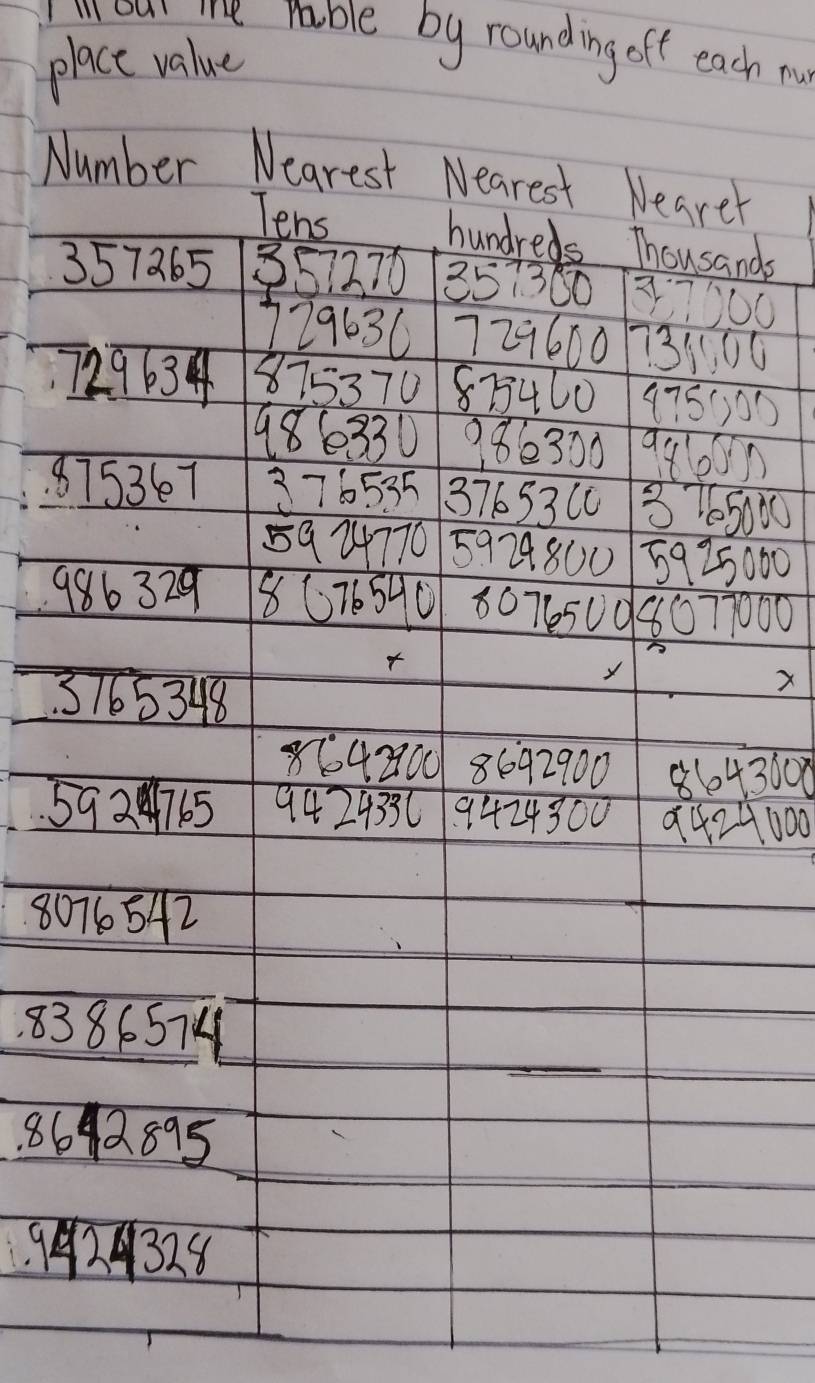 out the table by rounding off each
place value
Number Nearest Nearest Nearet
Tens hundreds Thousands
357265 357270 357300 357000
729630 729600 731000
729634 875370 875400 875000
986330 986300 986000
875367 376535 3765300 3765000
5924770 5924800 5925000
986329 8076540 8076500 8077000
x x x
3765348
8642900 8642900 8643000
5924765 9424330 9424300 9424000
8076542
8386574
8642895
9424328